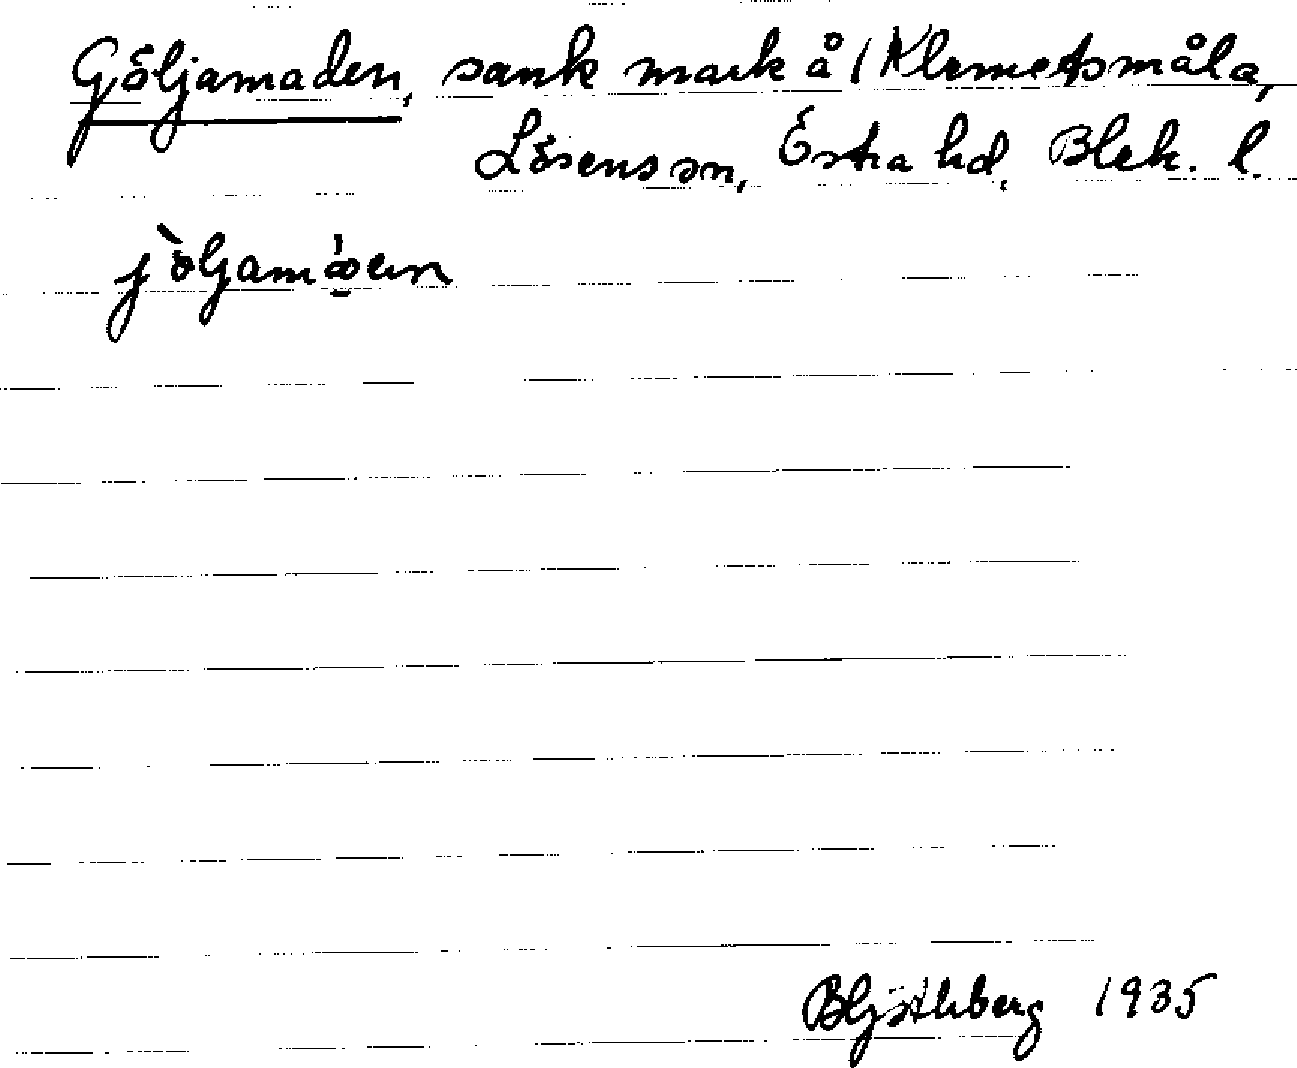 Göljamaden, sank mark å 1 Klemetsmåla,
Lösens sn, Östra hd, Blek. l.
BHjÿthberg 1935